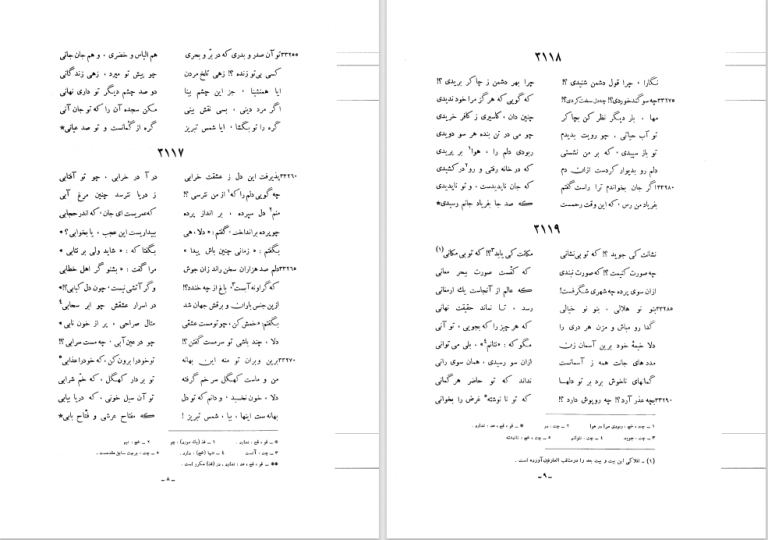 ۳۳۲۵۵تو آن صدر و بدری که در برّ و بحری هم الیاس و خضری ، و هم جان جانی
کسی بی‌تو زنده ؟! زهی تلخ مردن چو پیش تو میرد ، زهی زندگانی
ایا همنشینا ، جز این چشم بینا دو صد چشم دیگر تو داری نهانی
اگر مرد دینی ، بسی نقش بینی مکن سجده آن را که تو جان آنی
گره را تو بگشا ، ایا شمس تبریز گره از گمانست و تو صد عیانی*
۳۱۱۷
۳۳۲۶۰بپذیرفت این دل ز عشقت خرابی در آ در خرابی ، چو تو آفتابی
چه گویی دلم را که از من نترسی ؟! ز دریا نترسد چنین مرغ آبی
منم دل سپرده ، بر انداز پرده که عمریست ای جان ، که اندر حجابی
چو پرده برانداخت ، گفتم : « دلا ، هی بیداریست این عجب ، یا بخوابی ؟ »
بگفتم : « زمانی چنین باش پیدا » بگفتا که : « شاید ولی بر نتابی »
۳۳۲۶۵دلم صد هزاران سخن راند زان جوش مرا گفت : « بشنو گر اهل خطابی
که گر او نه آبست باغ از چه خندد؟! وگر آتشی نیست ، چون دل کبابی؟! »
ازین جنس باران و برقش جهان شد در اسرار عشقش چو ابر سحابی
بگفتم : « خمش کن ، چو تو مست عشقی مثال صراحی ، پر از خون نابی »
دلا ، چند باشی تو سرمست گفتن ؟! چو در عین آبی ، چه مست سرابی ؟!
۳۳۲۷۰برین و بران تو منه این بهانه تو خود را برون کن ، که خود را عذابی
من و ماست کهگل سر خم گرفته تو بر دار کهگل ، که خمّ شرابی
دلا ، خون نخسبد ، و دانم که تو دل تو آن سیل خونی ، که دریا بیابی
بهانه‌ست اینها ، بیا ، شمس تبریز ! که مفتاح عرشی و فتّاح بابی*
- ۸ -
۳۱۱۸
نگارا ، چرا قول دشمن شنیدی ؟! چرا بهر دشمن ز چاکر بریدی ؟!
۳۳۲۷۵چه سوگند خوردی؟! چه دل سخت کردی؟! که گویی که هرگز مرا خود ندیدی
مها ، بار دیگر نظر کن بچاکر چنین دان ، کاسیری ز کافر خریدی
تو آب حیاتی ، چو رویت بدیدم چو می در تن بنده هر سو دویدی
تو باز سپیدی ، که بر من نشستی ربودی دلم را ، هوا بر پریدی
دلم رو بدیوار کردست ازان دم که در خانه رفتی و رو در کشیدی
۳۳۲۸۰اگر جان بخواندم ترا راست گفتم که جان ناپدیدست ، و تو ناپدیدی
بفریاد من رس ، که این وقت رحمست که صد جا بفریاد جانم رسیدی*
۳۱۱۹
نشانت کی جوید ؟! که تو بی‌نشانی مکانت کی یابد؟! که تو بی مکانی (۱)
چه صورت کنیمت ؟! که صورت نبندی که کفّست صورت ببحر معانی
ازان سوی پرده چه شهری شگرفست! که عالم از آنجاست یک ارمغانی
۳۳۲۸۵بنو نو هلالی ، بنو نو خیالی رسد ، تا نماند حقیقت نهانی
گدا رو مباش و مزن هر دری را که هر چیز را که بجویی ، تو آنی
دلا خیمهٔ خود برین آسمان زن مگو که : « نتانم » ، بلی می‌توانی
مددهای جانت همه ز آسمانست ازان سو رسیدی ، همان سوی رانی
گمانهای ناخوش برد بر تو دلها نداند که تو حاضر هر گمانی
۳۳۲۹۰بچه عذر آرد؟! چه روپوش دارد ؟! که تو نا نوشته غرض را بخوانی
(۱) ـ افلاکی این بیت و بیت بعد را در مناقب العارفین آورده است .
- ۹ -